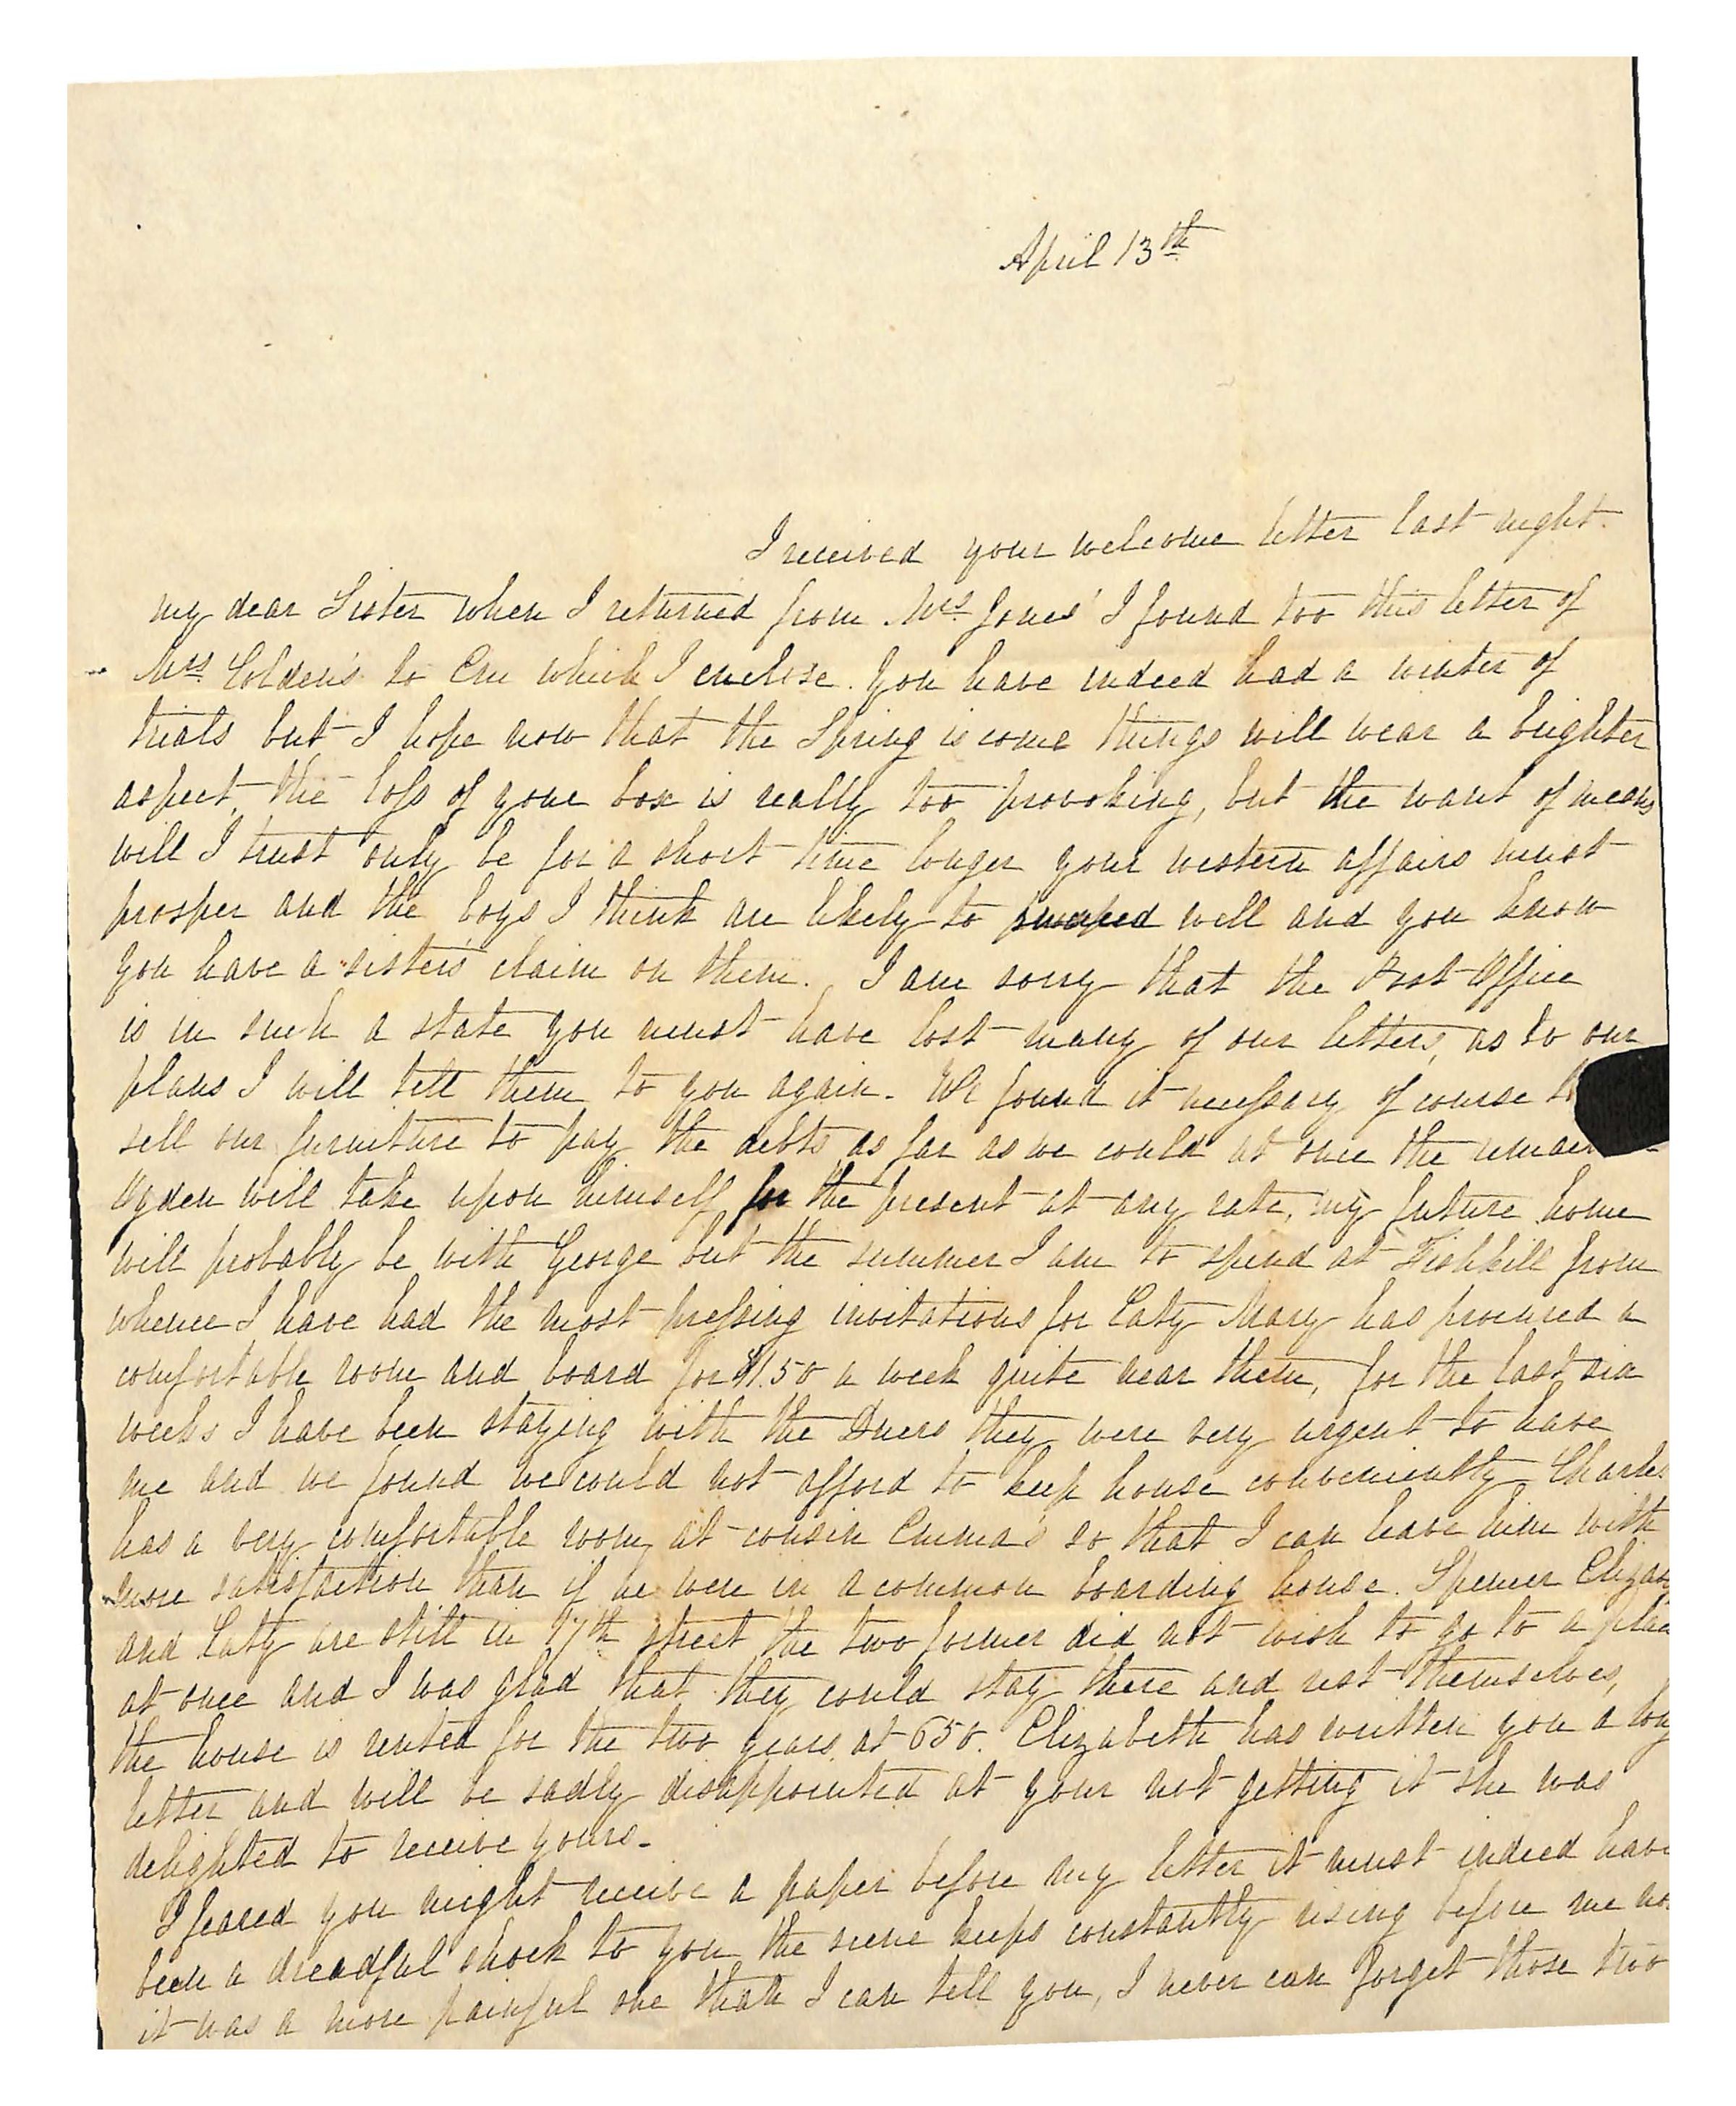 April 13th
I received your welcome letter last night.
my dear Sister when I returned from Mrs Jones' I found too this letter of
Mrs Colden's to Em which I enclose. You have indeed had a winter of
trials but I hope now that the Spring is come things will wear a brighter
aspect, the loss of your box is really too provoking, but the want of means
will I trust only be for a short time longer your western affairs must
prosper and the boys I think are likely to well and you know
you have a sister's claim on them. I am sorry that the Post Office
is in such a state you must have lost many of our letters, as to our
plans I will tell them to you again. We found it necessary of course
sell our furniture to pay the debts as far as we could at once the
Ogden will take upon himself for the present at any rate, my future home
will probably be with George but the summer I am to spend at Fishkill from
whence I have had the most pressing invitations for Caty Mary has procured a
comfortable room and board for $1.50 a week quite near them, for the last six
weeks I have been staying with the Duers they were very urgent to have
me and we found we could not afford to keep house conveniently Charles
has a very comfortable room at cousin Emma's so that I can leave him with
more satisfaction than if he were in a common boarding house. Spencer
and Caty are still in 17th street the two former did not wish to go to a place
at once and I was glad that they could stay there and rest themselves,
the house is rented for the two years at 650. Elizabeth has written you a long
letter and will be sadly disappointed at your not getting it she was
delighted to receive yours.
I feared you might receive a paper before my letter it must indeed have
been a dreadful shock to you the scene keeps constantly rising before me
it was a more painful one than I can tell you, I never can forget those two